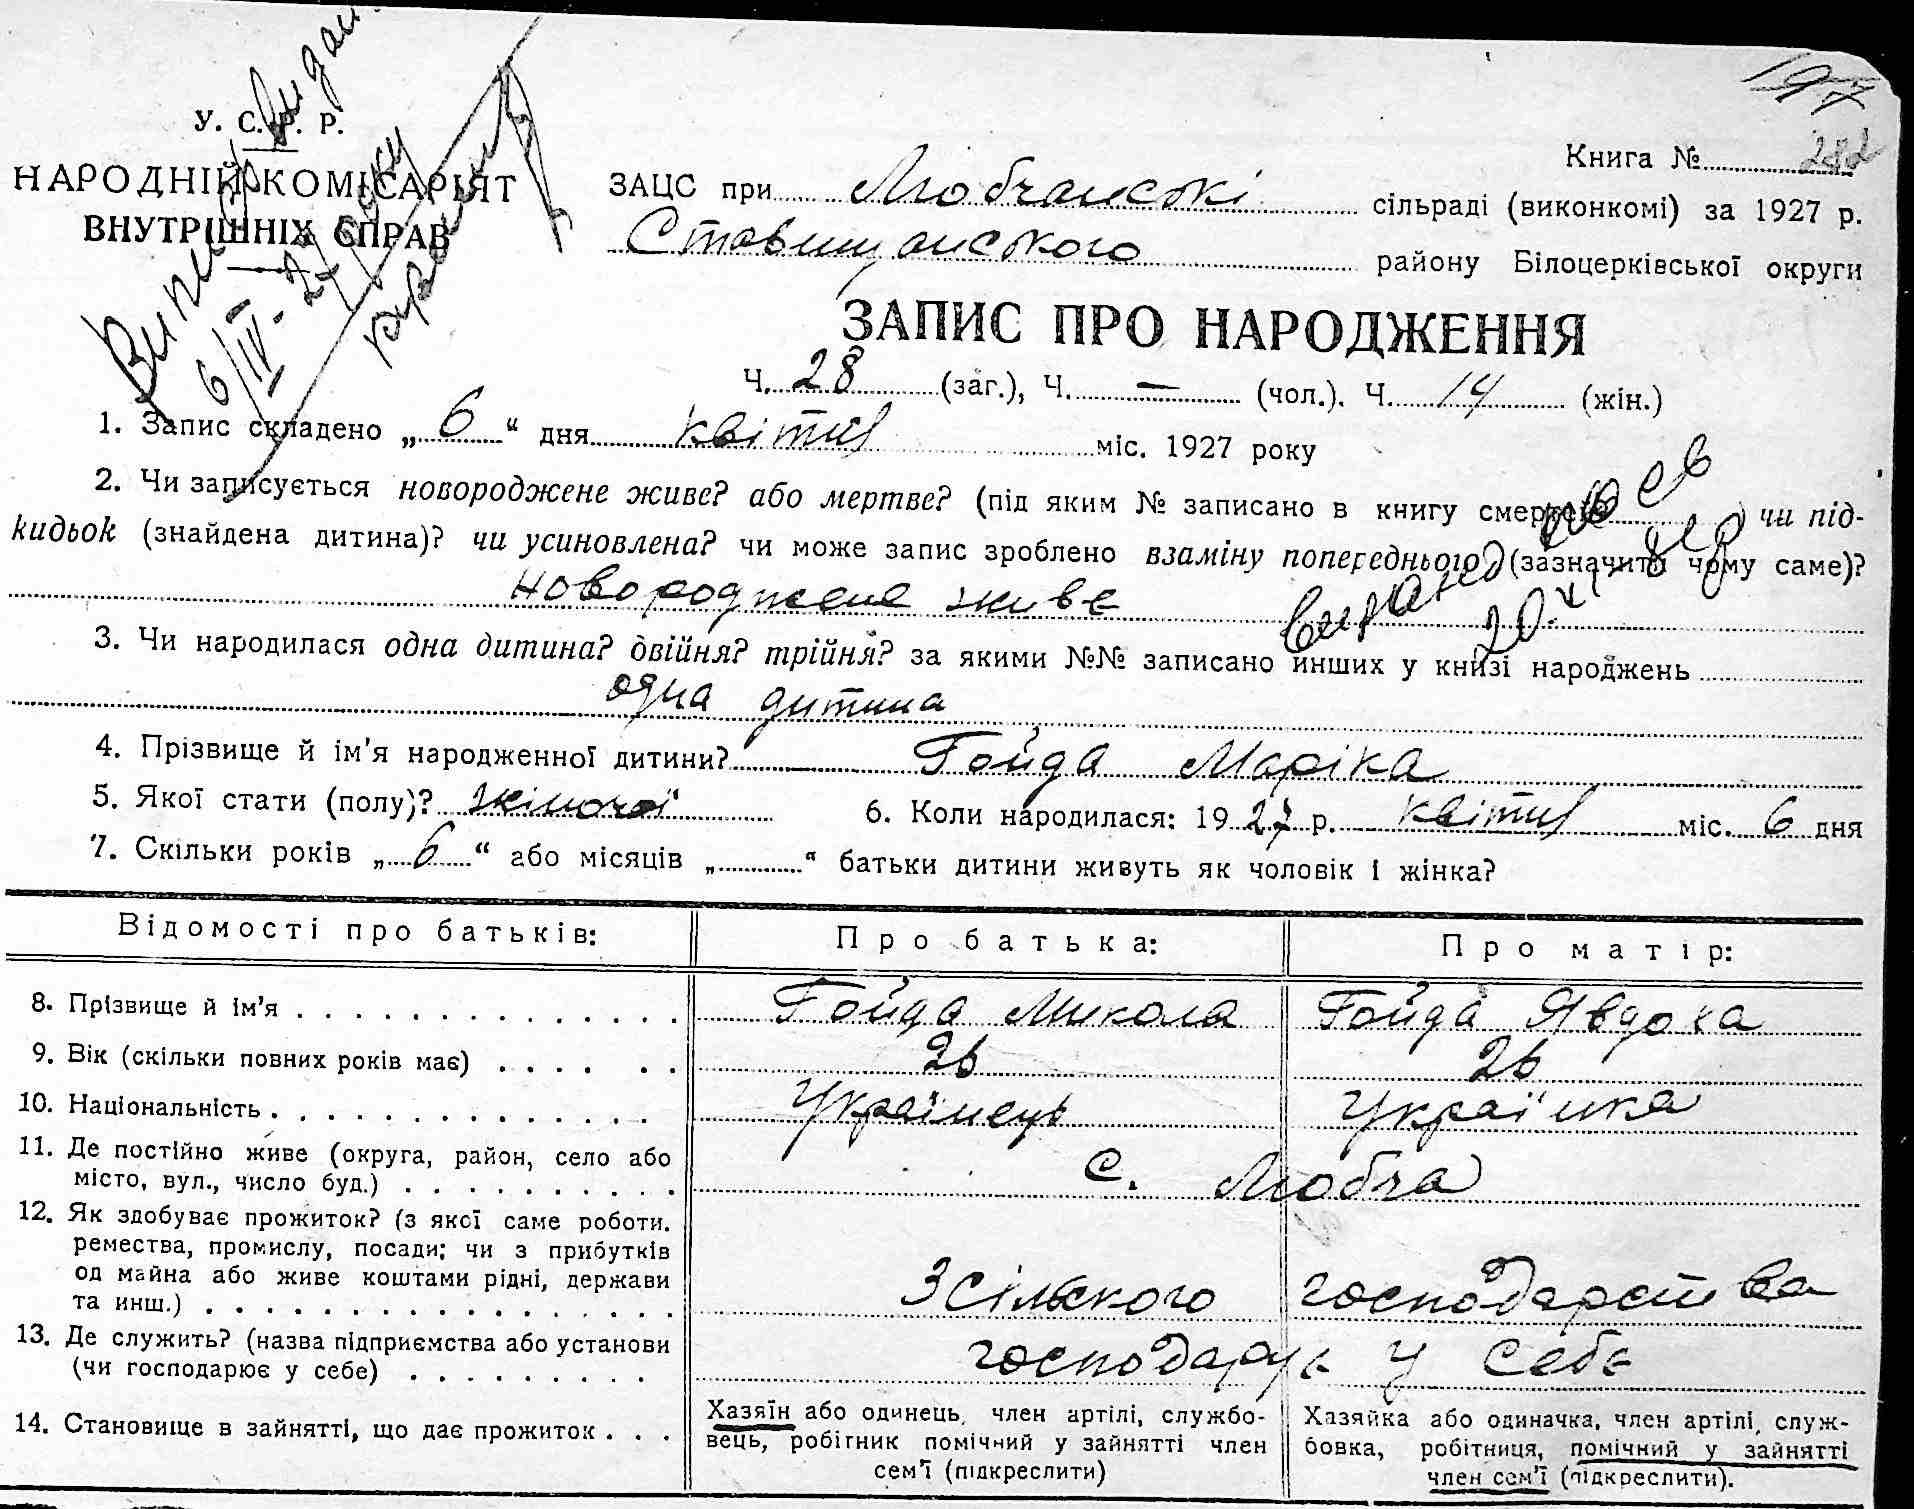 197
У. С. Р. Р.
НАРОДНІЙ КОМІСАРІЯТ
ВНУТРІШНІХ СПРАВ
6/IV-27 року
Книга №
282
ЗАЦС при Любчанській сільраді (виконкомі) за 1927 р.
Ставищанського району Білоцерківської округи
ЗАПИС ПРО НАРОДЖЕННЯ
Ч. 28 (заг.), Ч. — (чол.). Ч. 14 (жін.)
1. Запис складено „ 6 “ дня квітня міс. 1927 року
2. Чи записується новороджене живе? або мертве? (під яким № записано в книгу смертей ) чи під-
кидьок (знайдена дитина)? чи усиновлена? чи може запис зроблено взаміну попереднього (зазначити чому саме)?
новороджене живе
3. Чи народилася одна дитина? двійня? трійня? за якими №№ записано инших у книзі народжень
одна дитина
4. Прізвище й ім'я народженної дитини? Гойда Маріка
5. Якої стати (полу)? жіночої 6. Коли народилася: 19 27 р. квітня міс. 6 дня
7. Скільки років „ 6 “ або місяців „ “ батьки дитини живуть як чоловік і жінка?
Відомості про батьків: Про батька: Про матір:
8. Прізвище й ім'я Гойда Микола Гойда Явдоха
9. Вік (скільки повних років має) 26 26
10. Національність Українець Українка
11. Де постійно живе (округа, район, село або
місто, вул., число буд.) с. Любча
12. Як здобуває прожиток? (з якої саме роботи.
ремества, промислу, посади; чи з прибутків
од майна або живе коштами рідні, держави
та инш.) З сільського господарства
13. Де служить? (назва підприємства або установи
(чи господарює у себе) господарує у себе
14. Становище в зайнятті, що дає прожиток
Хазяїн або одинець, член артілі, службо-
вець, робітник помічний у зайнятті член
сем'ї (підкреслити)
Хазяйка або одиначка, член артілі, служ-
бовка, робітниця, помічний у зайнятті
член сем'ї (підкреслити).